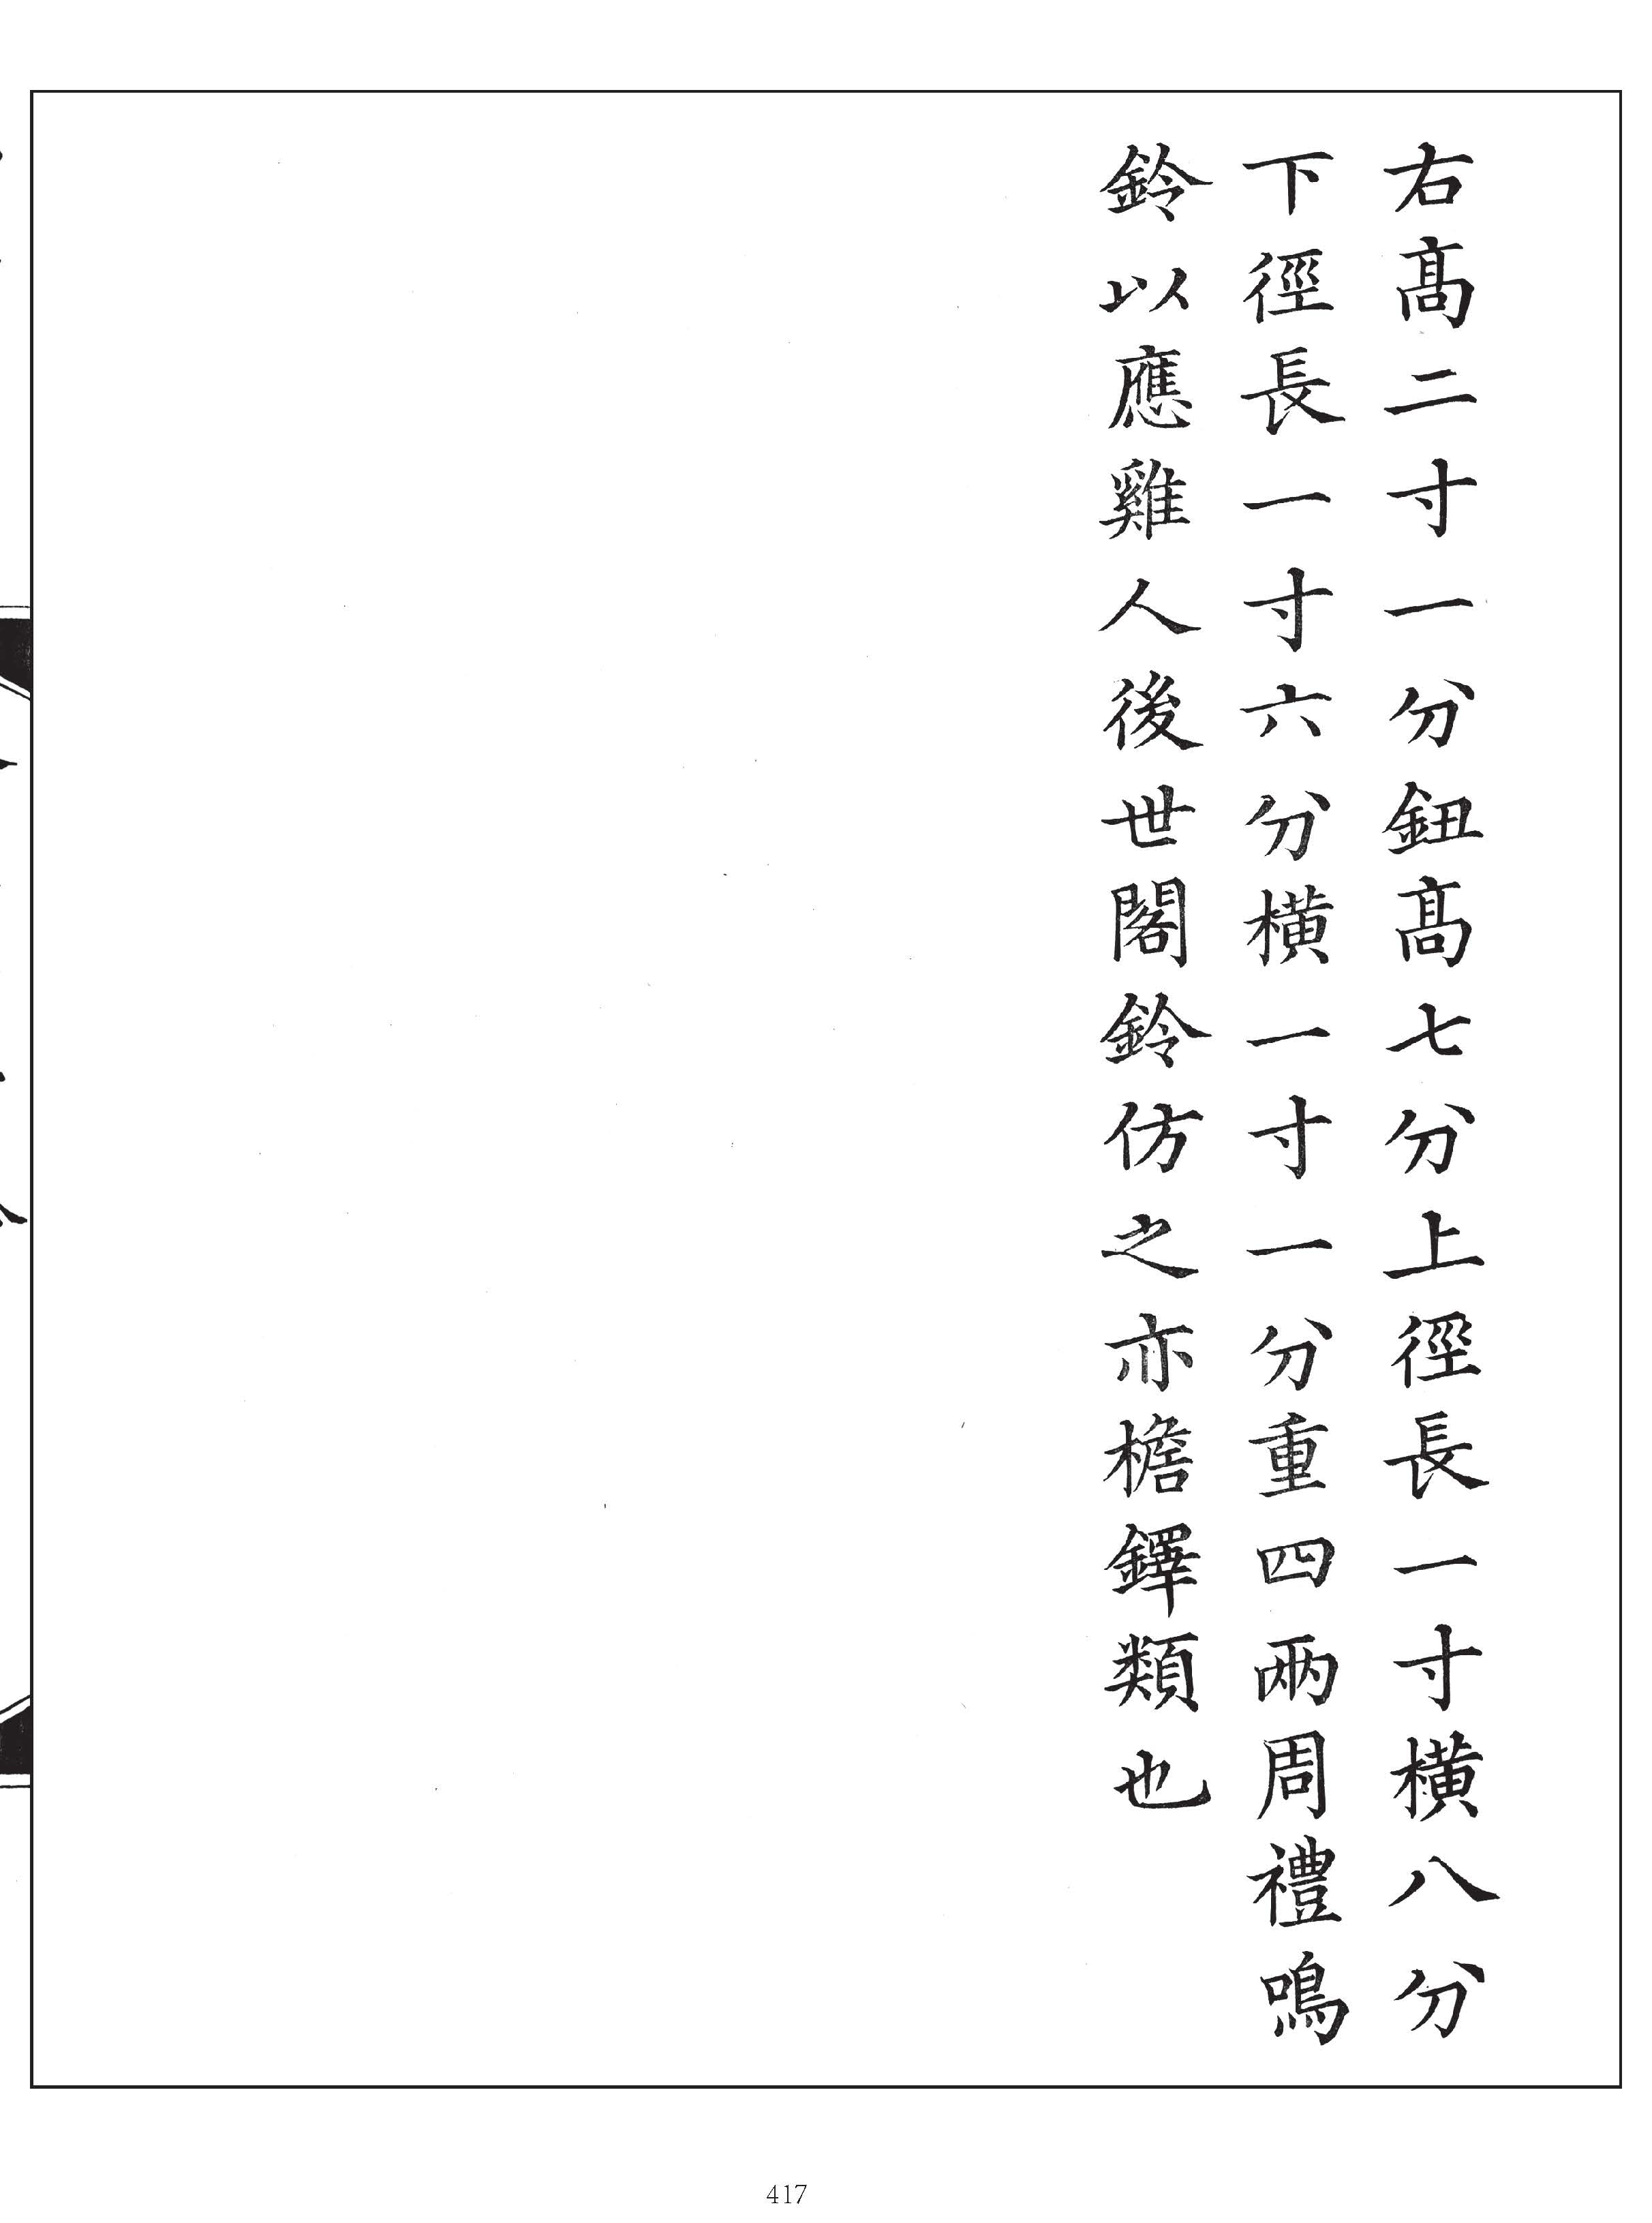 右髙二寸一分鈕髙七分上徑長一寸橫八分
下徑長一寸六分橫一寸一分重四兩周禮鳴
鈴以應雞人後世閣鈴仿之亦檐鐸類也
417